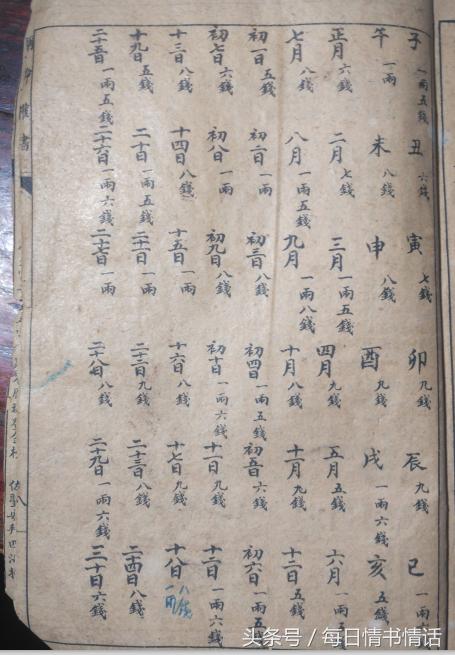 子 一兩五錢 丑 六錢 寅 七錢 卯 九錢 辰 九錢 巳 一兩
午 一兩 未 八錢 申 八錢 酉 九錢 戌 一兩六錢 亥 五錢
正月 六錢 二月 七錢 三月 一兩五錢 四月 九錢 五月 五錢 六月 一兩五
七月 八錢 八月 一兩五錢 九月 一兩八錢 十月 八錢 十一月 九錢 十二月 五錢
初一日 五錢 初二日 一兩 初三日 八錢 初四日 一兩五錢 初五日 六錢 初六日 一兩五
初七日 六錢 初八 一兩 初九日 八錢 初十日 一兩六錢 十一日 九錢 十二日 一兩六錢
十三日 八錢 十四日 八錢 十五日 一兩 十六日 八錢 十七日 九錢 十八日 一兩 八錢
十九日 五錢 二十日 一兩五錢 二十一日 一兩 二十二日 九錢 二十三日 八錢 二十四日 八錢
二十五日 一兩五錢 二十六日 一兩六錢 二十七日 一兩 二十八日 八錢 二十九日 一兩六錢 三十日 六錢
頭条号 / 每日情书情话